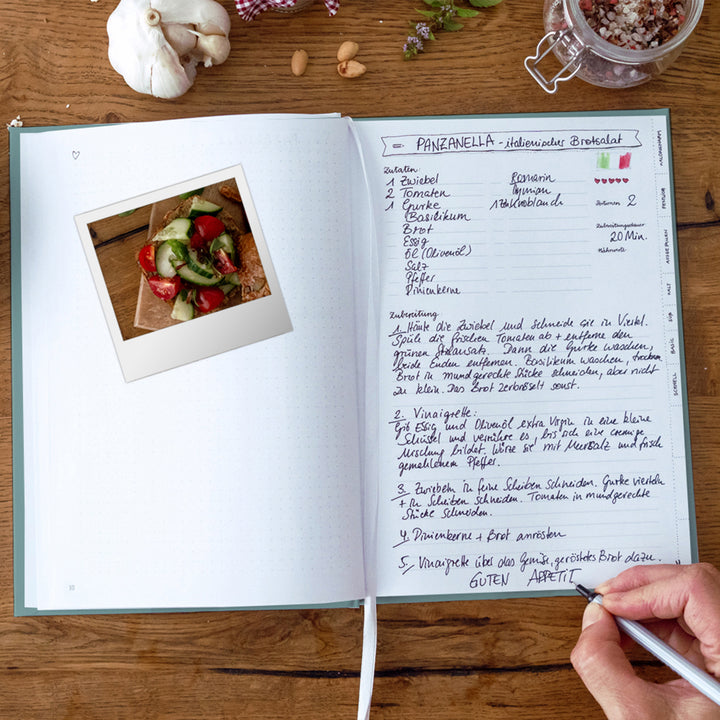 PANZANELLA - italienischer Brotsalat
Zutaten
1 Zwiebel
2 Tomaten
1 Gurke
Basilikum
Brot
Essig
Öl (Olivenöl)
Salz
Pfeffer
Pinienkerne
Rosmarin
Thymian
1 Zeh Knoblauch
Portionen 2
Zubereitungsdauer
20 Min.
Nährwerte
Zubereitung
1. Häute die Zwiebel und schneide sie in Viertel.
Spüle die frischen Tomaten ab + entferne den
grünen Stielansatz. Dann die Gurke waschen,
beide Enden entfernen. Basilikum waschen, trocknen
Brot in mundgerechte Stücke schneiden, aber nicht
zu klein. Das Brot zerbröselt sonst.
2. Vinaigrette:
Gib Essig und Olivenöl extra Virgin in eine kleine
Schüssel und verrühre es, bis sich eine cremige
Mischung bildet. Würze sie mit Meersalz und frisch
gemahlenem Pfeffer.
3. Zwiebeln in feine Scheiben schneiden. Gurke vierteln
+ in Scheiben schneiden. Tomaten in mundgerechte
Stücke schneiden.
4. Pinienkerne + Brot anrösten
5. Vinaigrette über das Gemüse, geröstetes Brot dazu.
GUTEN APPETIT
10
SALAT
SÜß
BASIC
SCHNELL